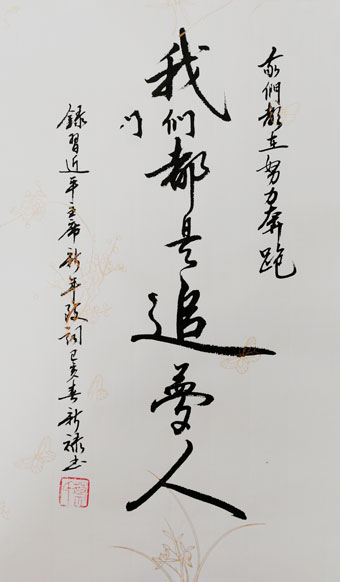 我們都在努力奔跑
我们都是追夢人
錄習近平主席新年致詞己亥春新禄书